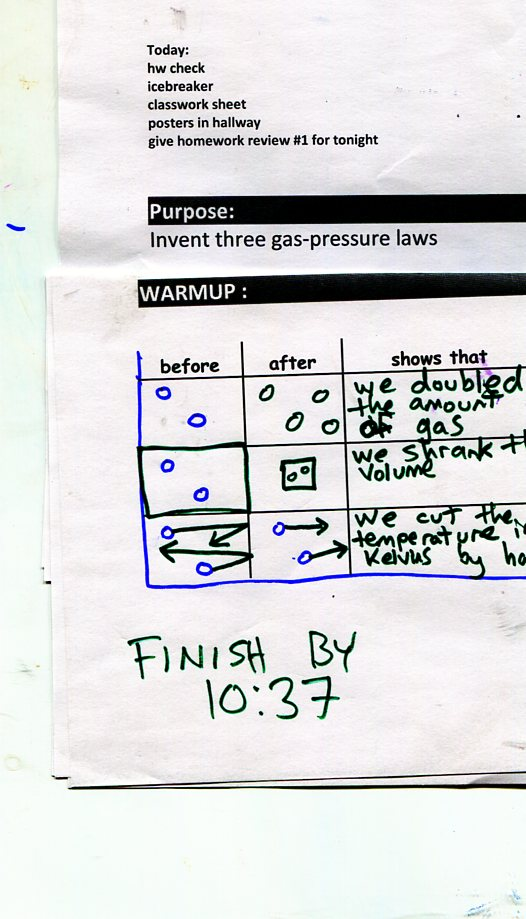 Today:
hw check
icebreaker
classwork sheet
posters in hallway
give homework review #1 for tonight
Purpose:
Invent three gas-pressure laws
WARMUP :
before after shows that
we doubled
the amount
of gas
we shrank
volume
we cut the
temperature
Kelvins by
FINISH BY
10:37